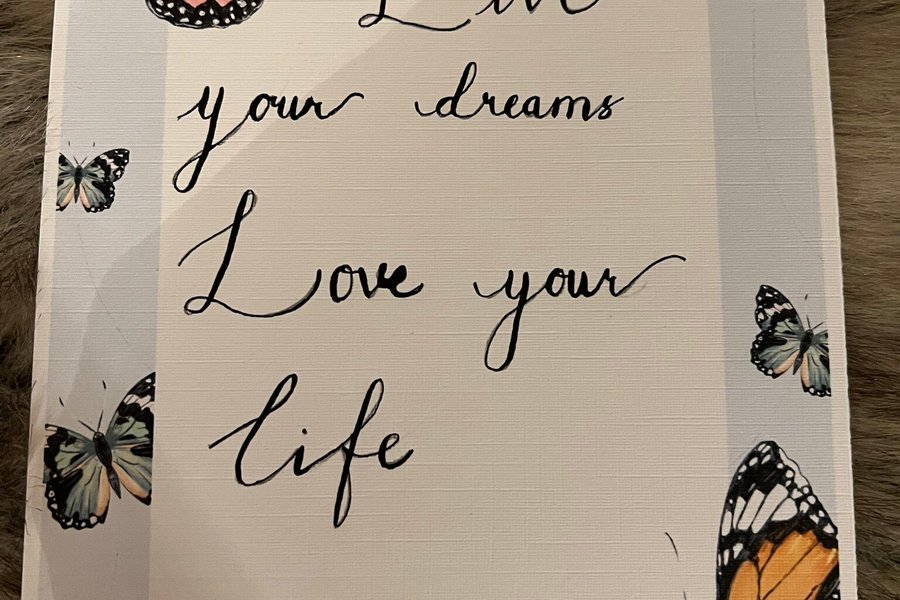 Live
your dreams
Love your
life